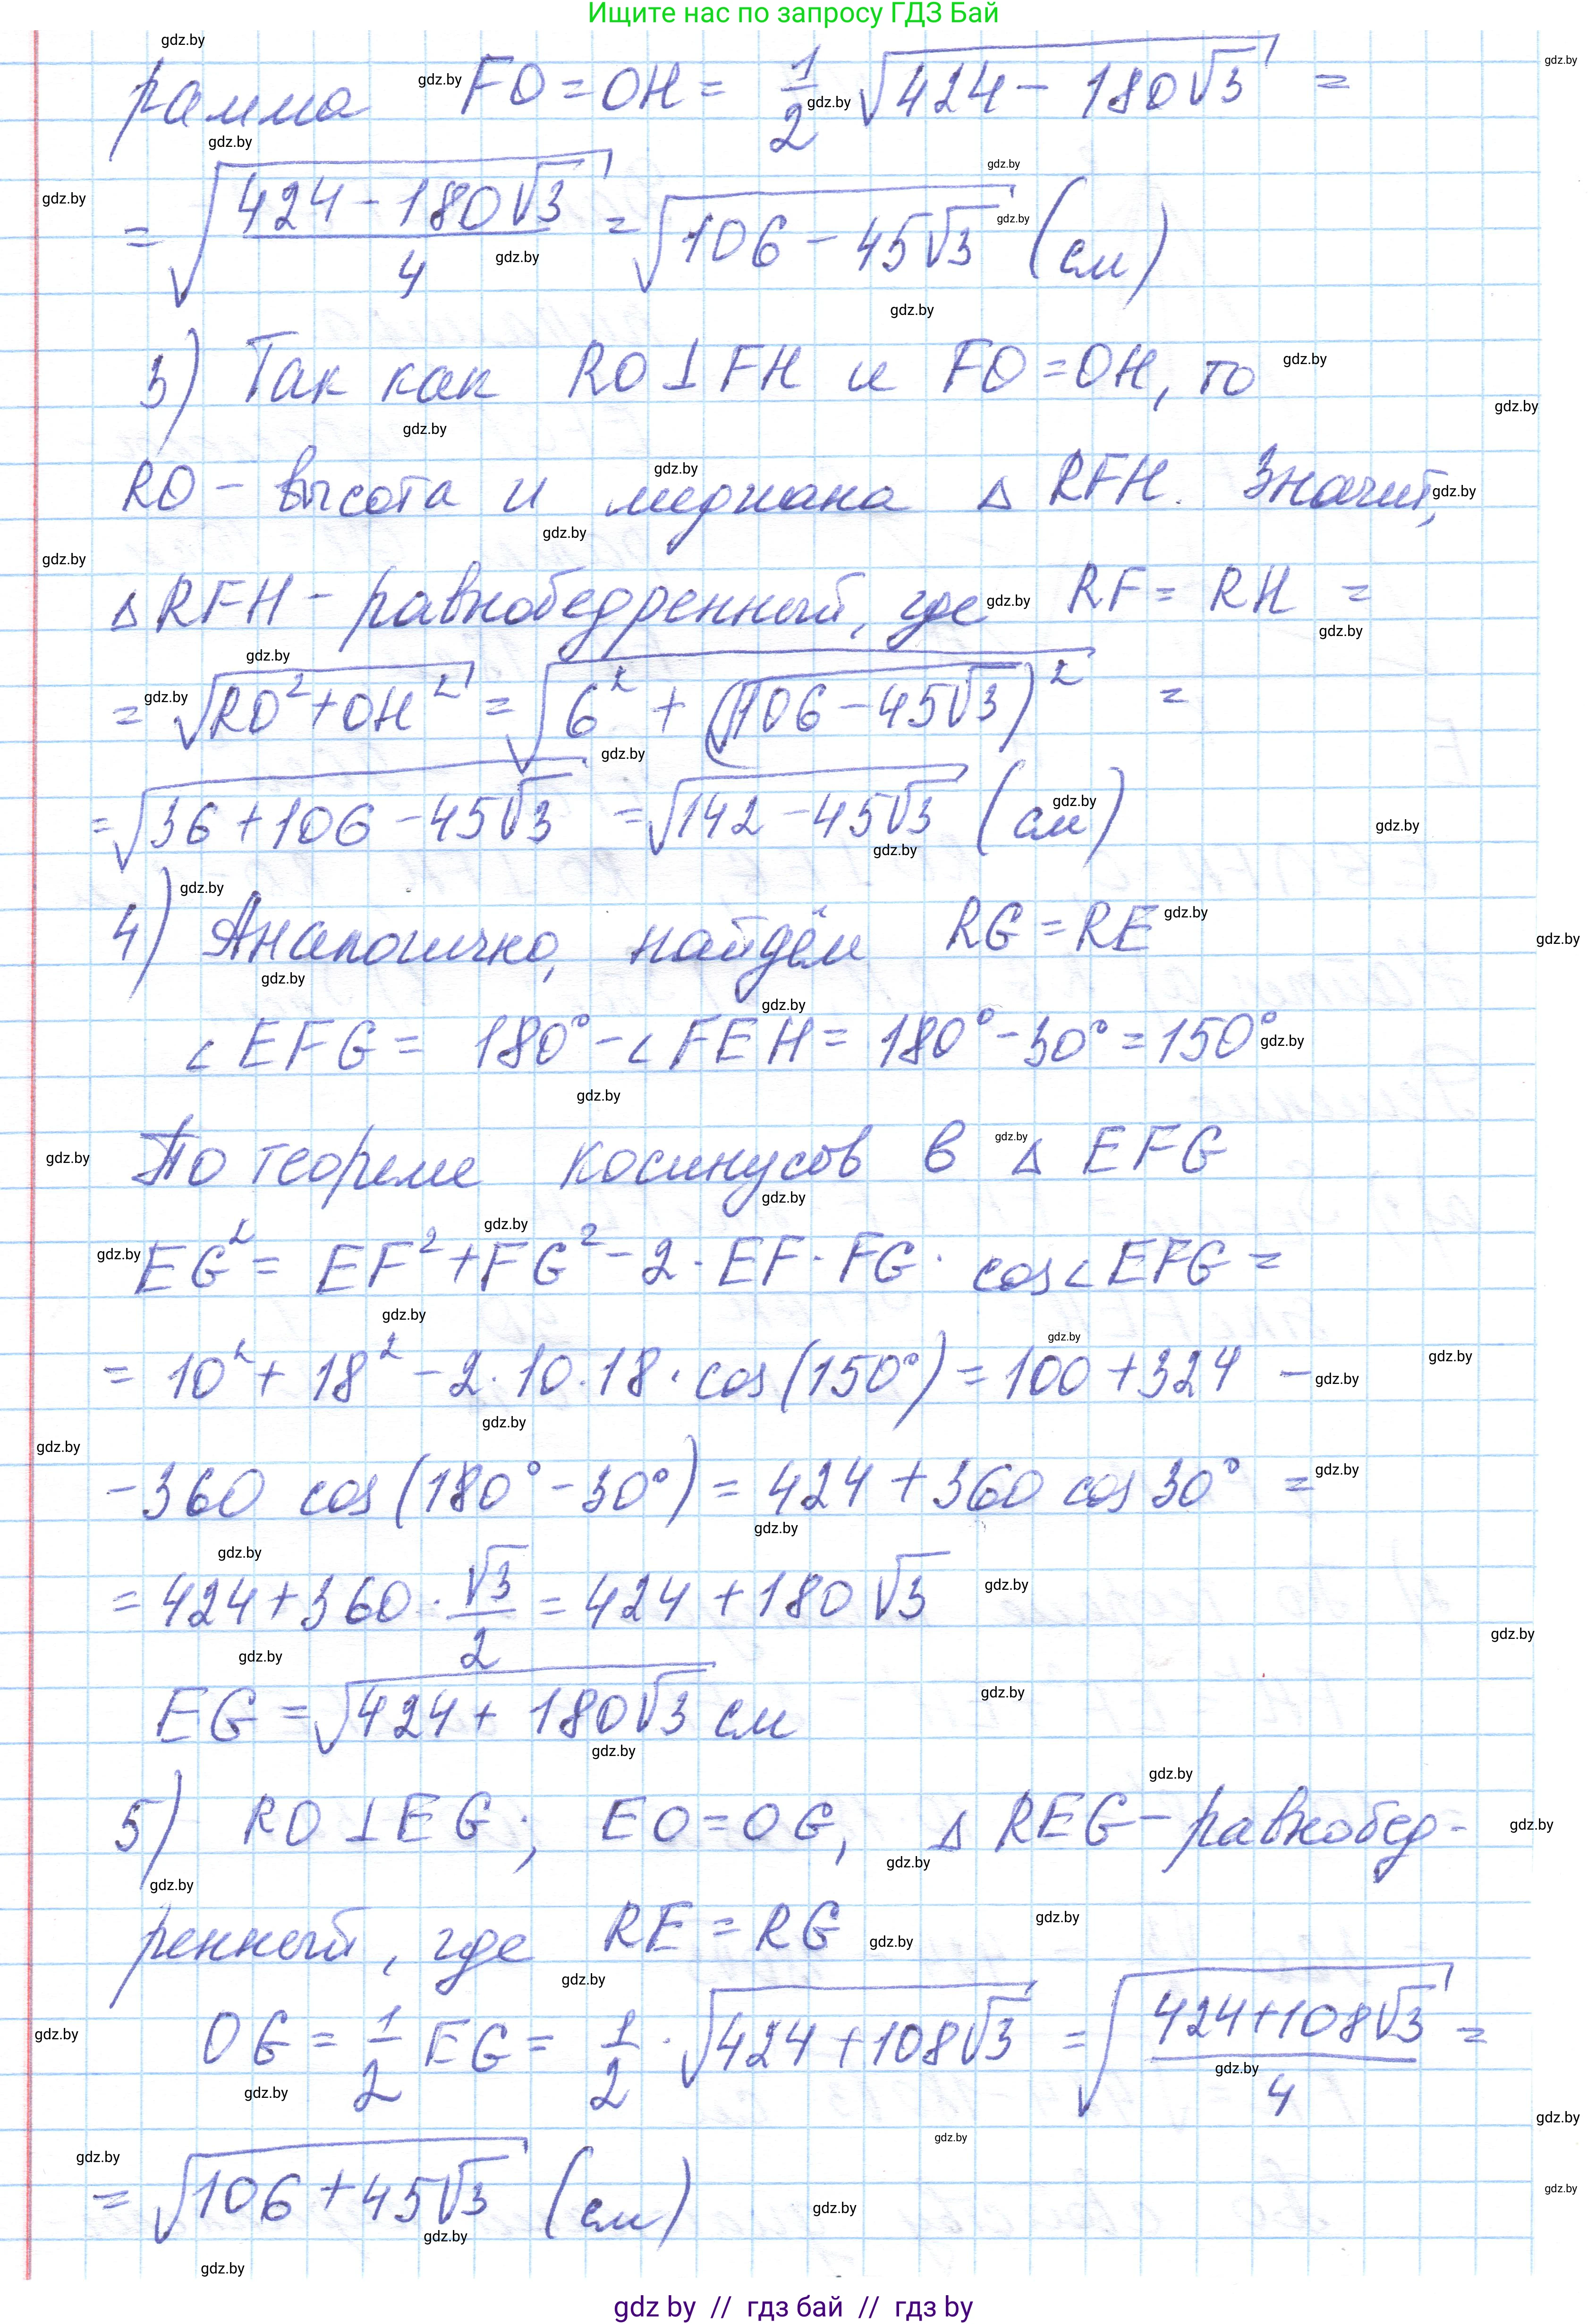 Ищите нас по запросу ГДЗ Бай
рамма FO = OH = 1/2 √(424 - 180√3) =
= √((424 - 180√3)/4) = √(106 - 45√3) (см)
3) Так как RO ⊥ FH и FO = OH, то
RO - высота и медиана Δ RFH. Значит,
Δ RFH - равнобедренный, где RF = RH =
= √(RO² + OH²) = √(6² + (√(106 - 45√3))²) =
= √(36 + 106 - 45√3) = √(142 - 45√3) (см)
4) Аналогично, найдём RG = RE
∠EFG = 180° - ∠FEH = 180° - 30° = 150°
По теореме косинусов в Δ EFG
EG² = EF² + FG² - 2 · EF · FG · cos∠EFG =
= 10² + 18² - 2 · 10 · 18 · cos(150°) = 100 + 324 -
- 360 cos(180° - 30°) = 424 + 360 cos 30° =
= 424 + 360 · √3/2 = 424 + 180√3
EG = √(424 + 180√3) см
5) RO ⊥ EG; EO = OG, Δ REG - равнобед-
ренный, где RE = RG
OG = 1/2 EG = 1/2 · √(424 + 108√3) = √((424 + 108√3)/4) =
= √(106 + 45√3) (см)
gdz by // гдз бай // гдз by